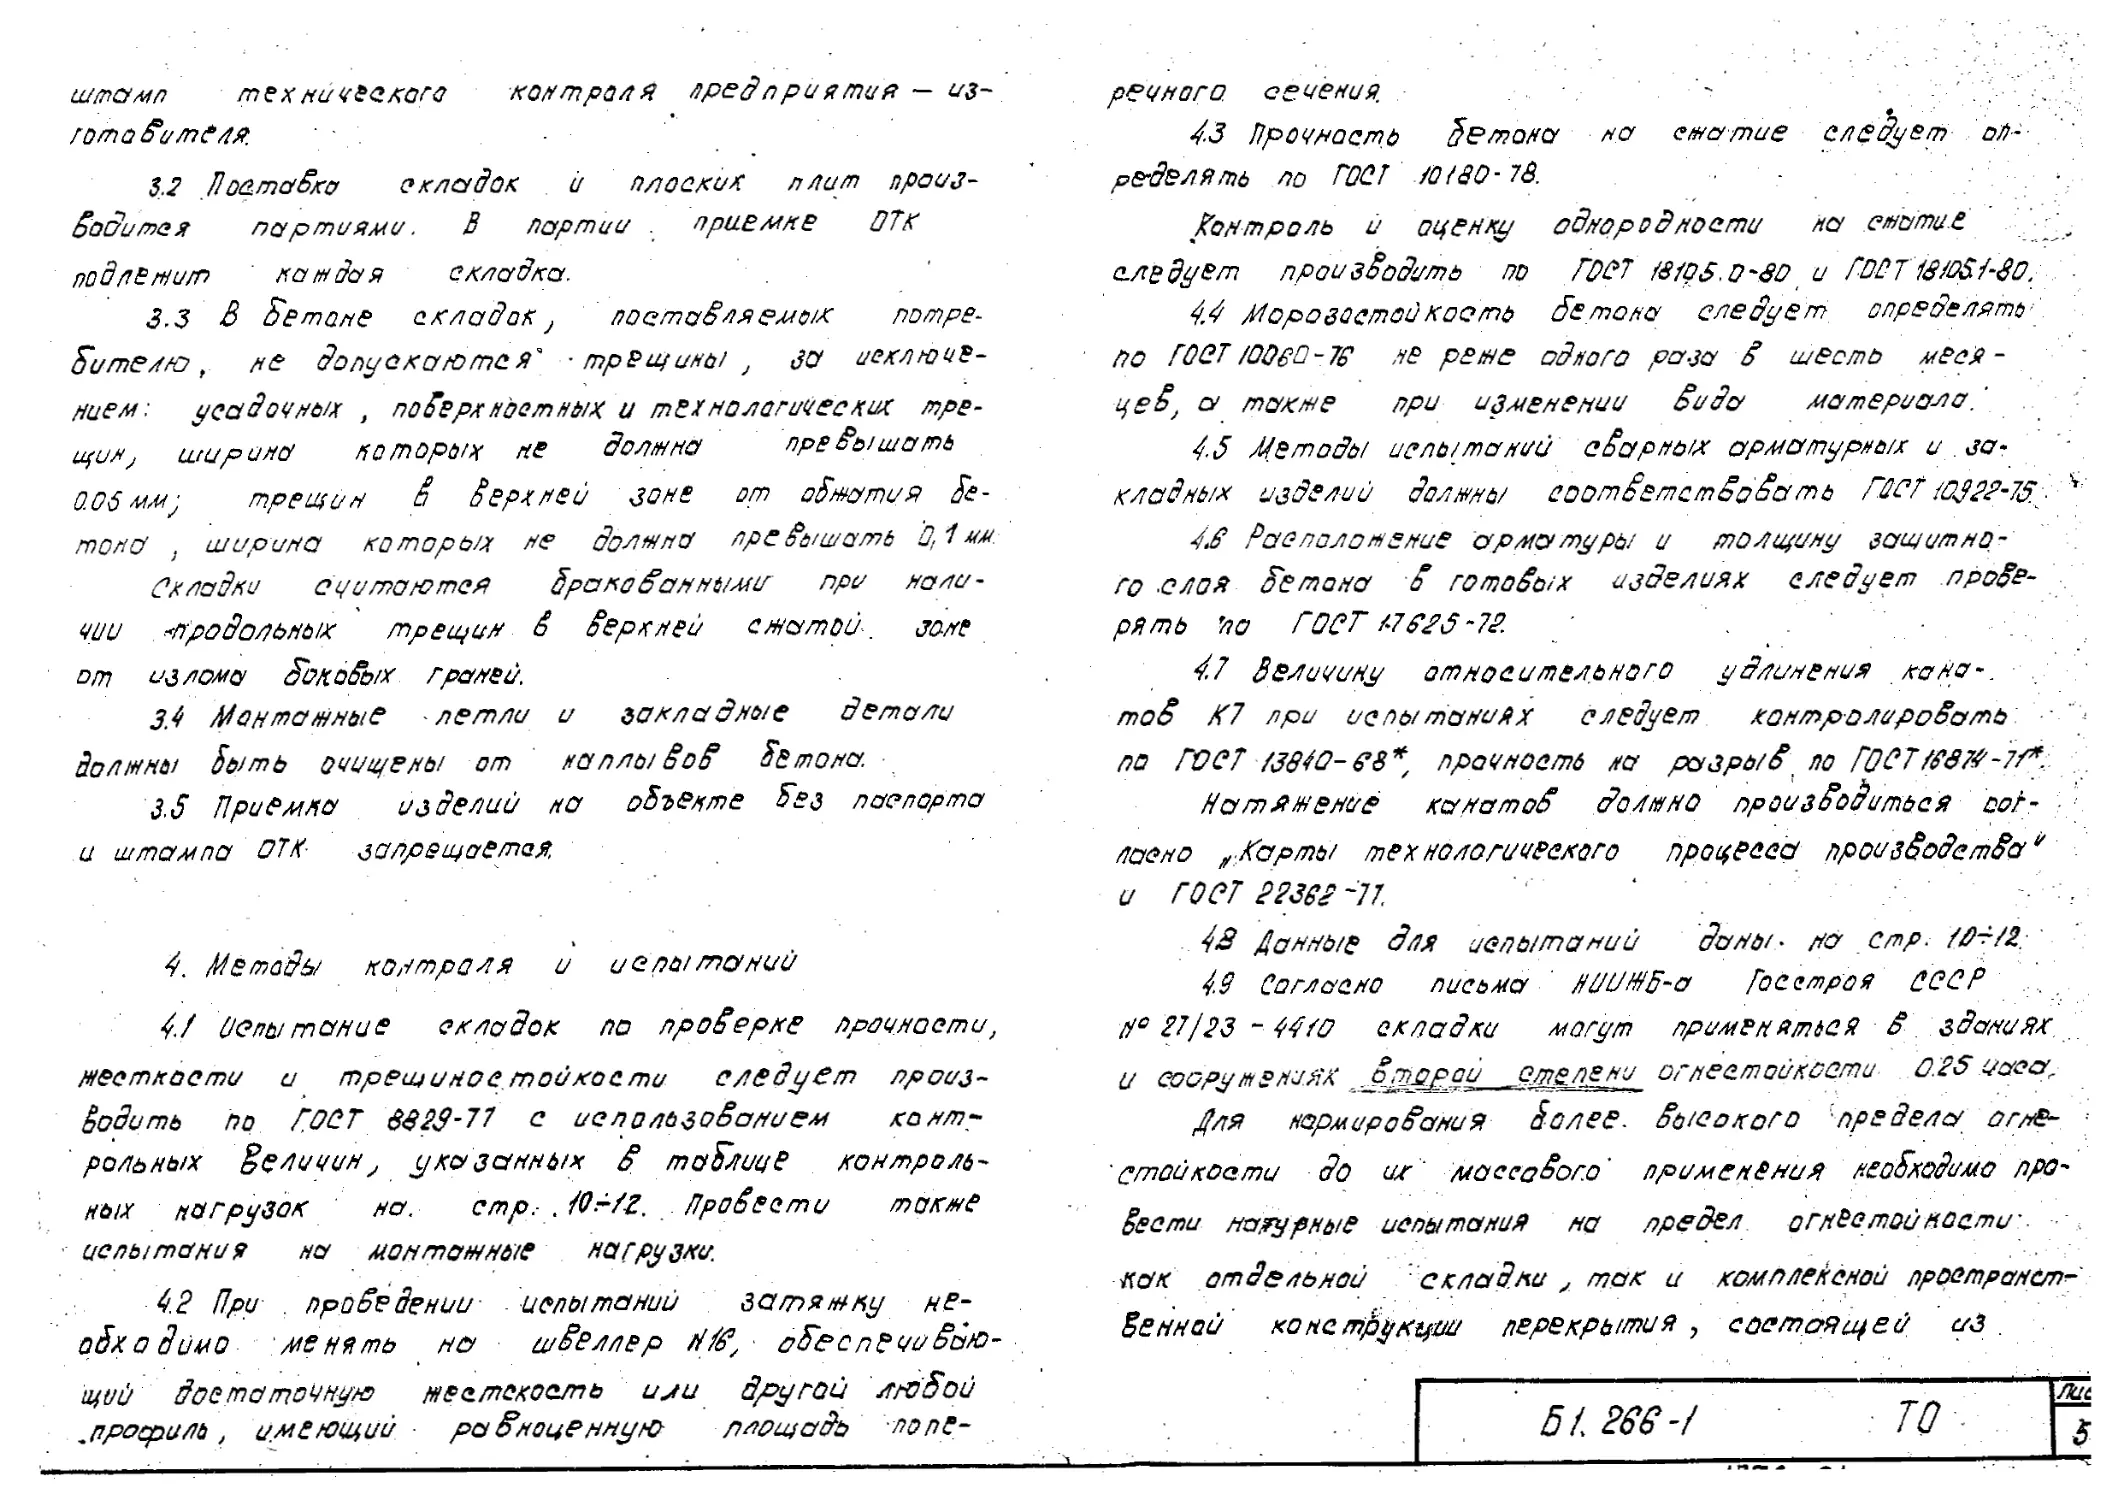 штамп технического контроля предприятия – из-
готовителя.
3.2 Поставка складок и плоских плит произ-
водится партиями. В партии приемке ОТК
подлежит каждая складка.
3.3 В бетоне складок, поставляемых потре-
бителю, не допускаются трещины, за исключе-
нием: усадочных, поверхностных и технологических тре-
щин, ширина которых не должна превышать
0.05 мм; трещин в верхней зоне от обжатия бе-
тона, ширина которых не должна превышать 0,1 мм.
Складки считаются бракованными при нали-
чии продольных трещин в верхней сжатой зоне
от излома боковых граней.
3.4 Монтажные петли и закладные детали
должны быть очищены от наплывов бетона.
3.5 Приемка изделий на объекте без паспорта
и штампа ОТК запрещается.
4. Методы контроля и испытаний
4.1 Испытание складок по проверке прочности,
жесткости и трещиностойкости следует произ-
водить по ГОСТ 8829-77 с использованием конт-
рольных величин, указанных в таблице контроль-
ных нагрузок на стр. 10÷12. Провести также
испытания на монтажные нагрузки.
4.2 При проведении испытаний затяжку не-
обходимо менять на швеллер N16, обеспечиваю-
щий достаточную жестскость или другой любой
профиль, имеющий равноценную площадь попе-
речного сечения.
4.3 Прочность бетона на сжатие следует оп-
ределять по ГОСТ 10180-78.
Контроль и оценку однородности на сжатие
следует производить по ГОСТ 18105.0-80 и ГОСТ 18105.1-80.
4.4 Морозостойкость бетона следует определять
по ГОСТ 10060-76 не реже одного раза в шесть меся-
цев, а также при изменении вида материала.
4.5 Методы испытаний сварных арматурных и за-
кладных изделий должны соответствовать ГОСТ 10922-75.
4.6 Расположение арматуры и толщину защитно-
го слоя бетона в готовых изделиях следует прове-
рять по ГОСТ 17625-72.
4.7 Величину относительного удлинения кана-
тов К7 при испытаниях следует контролировать
по ГОСТ 13840-68*, прочность на разрыв по ГОСТ 16874-71*.
Натяжение канатов должно производиться сог-
ласно „Карты технологического процесса производства"
и ГОСТ 22362-77.
4.8 Данные для испытаний даны на стр. 10÷12.
4.9 Согласно письма НИИЖБ-а Госстроя СССР
№ 27/23 - 4410 складки могут применяться в зданиях
и сооружениях второй степени огнестойкости 0.25 часа.
Для нормирования более высокого предела огне-
стойкости до их массового применения необходимо про-
вести натурные испытания на предел огнестойкости
как отдельной складки, так и комплексной пространст-
венной конструкции перекрытия, состоящей из
Б1.266-1 ТО
Лис
5